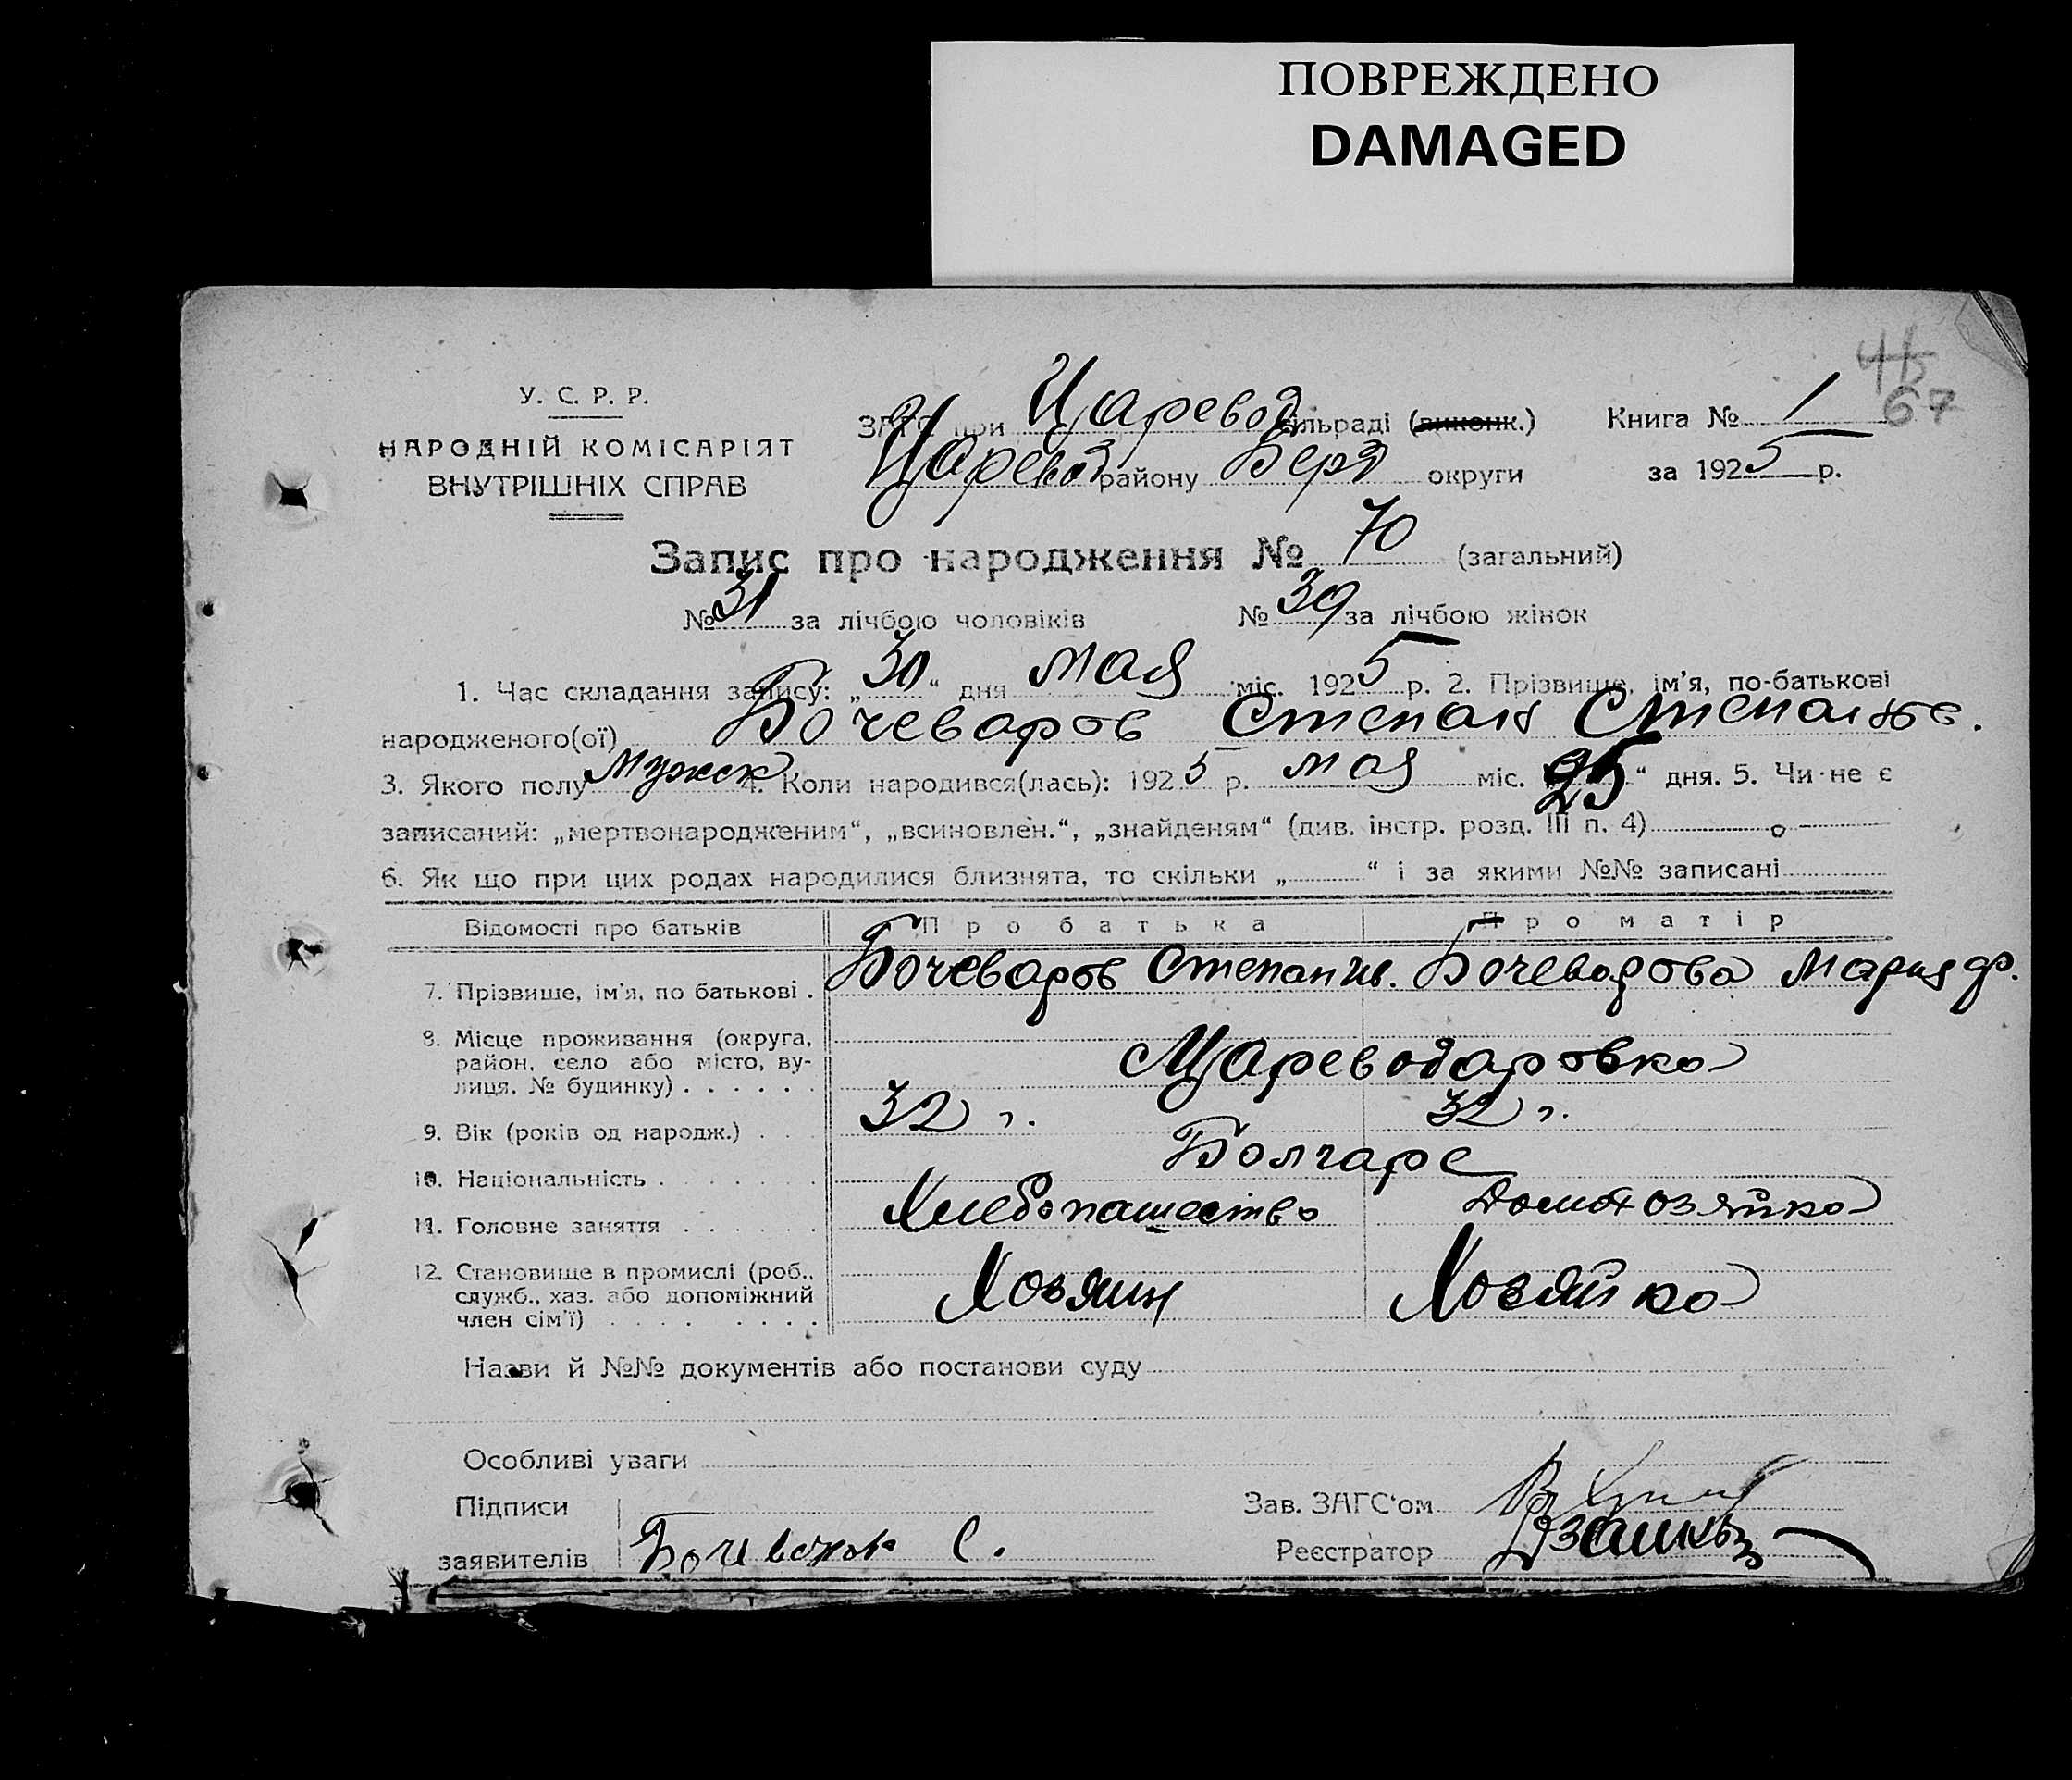 ПОВРЕЖДЕНО
DAMAGED
67
У. С. Р. Р.
НАРОДНІЙ КОМІСАРІЯТ
ВНУТРІШНІХ СПРАВ
ЗАГС при Царевод сільраді (виконк.) Книга № 1
Царевод району Берд округи за 1925 р.
Запис про народження № 70 (загальний)
№ 31 за лічбою чоловіків № 39 за лічбою жінок
1. Час складання запису: „ 30 “ дня мая міс. 1925 р. 2. Прізвище, ім'я, по-батькові
народженого(ої) Бочеваров Степан Степанов.
3. Якого полу Мужск 4. Коли народився(лась): 1925 р. мая міс. 25 “ дня. 5. Чи не є
записаний: „мертвонародженим“, „всиновлен.“, „знайденям“ (див. інстр. розд. III п. 4)
6. Як що при цих родах народилися близнята, то скільки „ “ і за якими №№ записані
Відомості про батьків Про батька Про матір
7. Прізвище, ім'я, по батькові . Бочеваров Степан Ив. Бочеварова Мария Ф.
8. Місце проживання (округа,
район, село або місто, ву-
лиця, № будинку) . . . . . . Цареводаровка
9. Вік (років од народж.) . . . 32 г. 32 г.
10. Національність . . . . . . . Болгаре
11. Головне заняття . . . . . . Хлебопашество Домохозяйка
12. Становище в промислі (роб.,
служб., хаз. або допоміжний
член сім'ї) . . . . . . . . Хозяин Хозяйка
Назви й №№ документів або постанови суду
Особливі уваги
Підписи Зав. ЗАГС'ом
заявителів Бочеваров С. Реєстратор